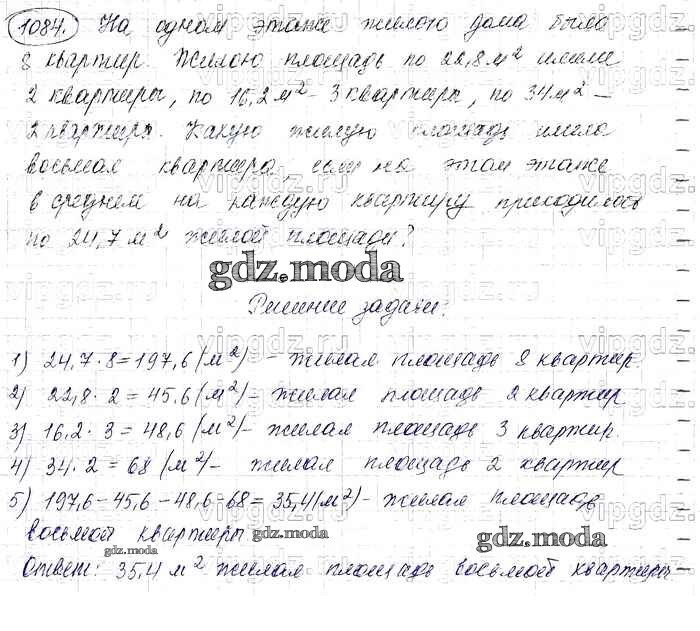 1084. На одном этаже жилого дома было
8 квартир. Жилою площадь по 22,8 м² имели
2 квартиры, по 16,2 м² - 3 квартиры, по 34 м² -
2 квартиры. Какую жилую площадь имела
восьмая квартира, если на этом этаже
в среднем на каждую квартиру приходилось
по 24,7 м² жилой площади?
gdz.moda
Решение задачи:
1) 24,7 · 8 = 197,6 (м²) - жилая площадь 8 квартир.
2) 22,8 · 2 = 45,6 (м²) - жилая площадь 2 квартир
3) 16,2 · 3 = 48,6 (м²) - жилая площадь 3 квартир.
4) 34 · 2 = 68 (м²) - жилая площадь 2 квартир
5) 197,6 - 45,6 - 48,6 - 68 = 35,4 (м²) - жилая площадь
восьмой квартиры
gdz.moda
gdz.moda
gdz.moda
Ответ: 35,4 м² жилая площадь восьмой квартиры